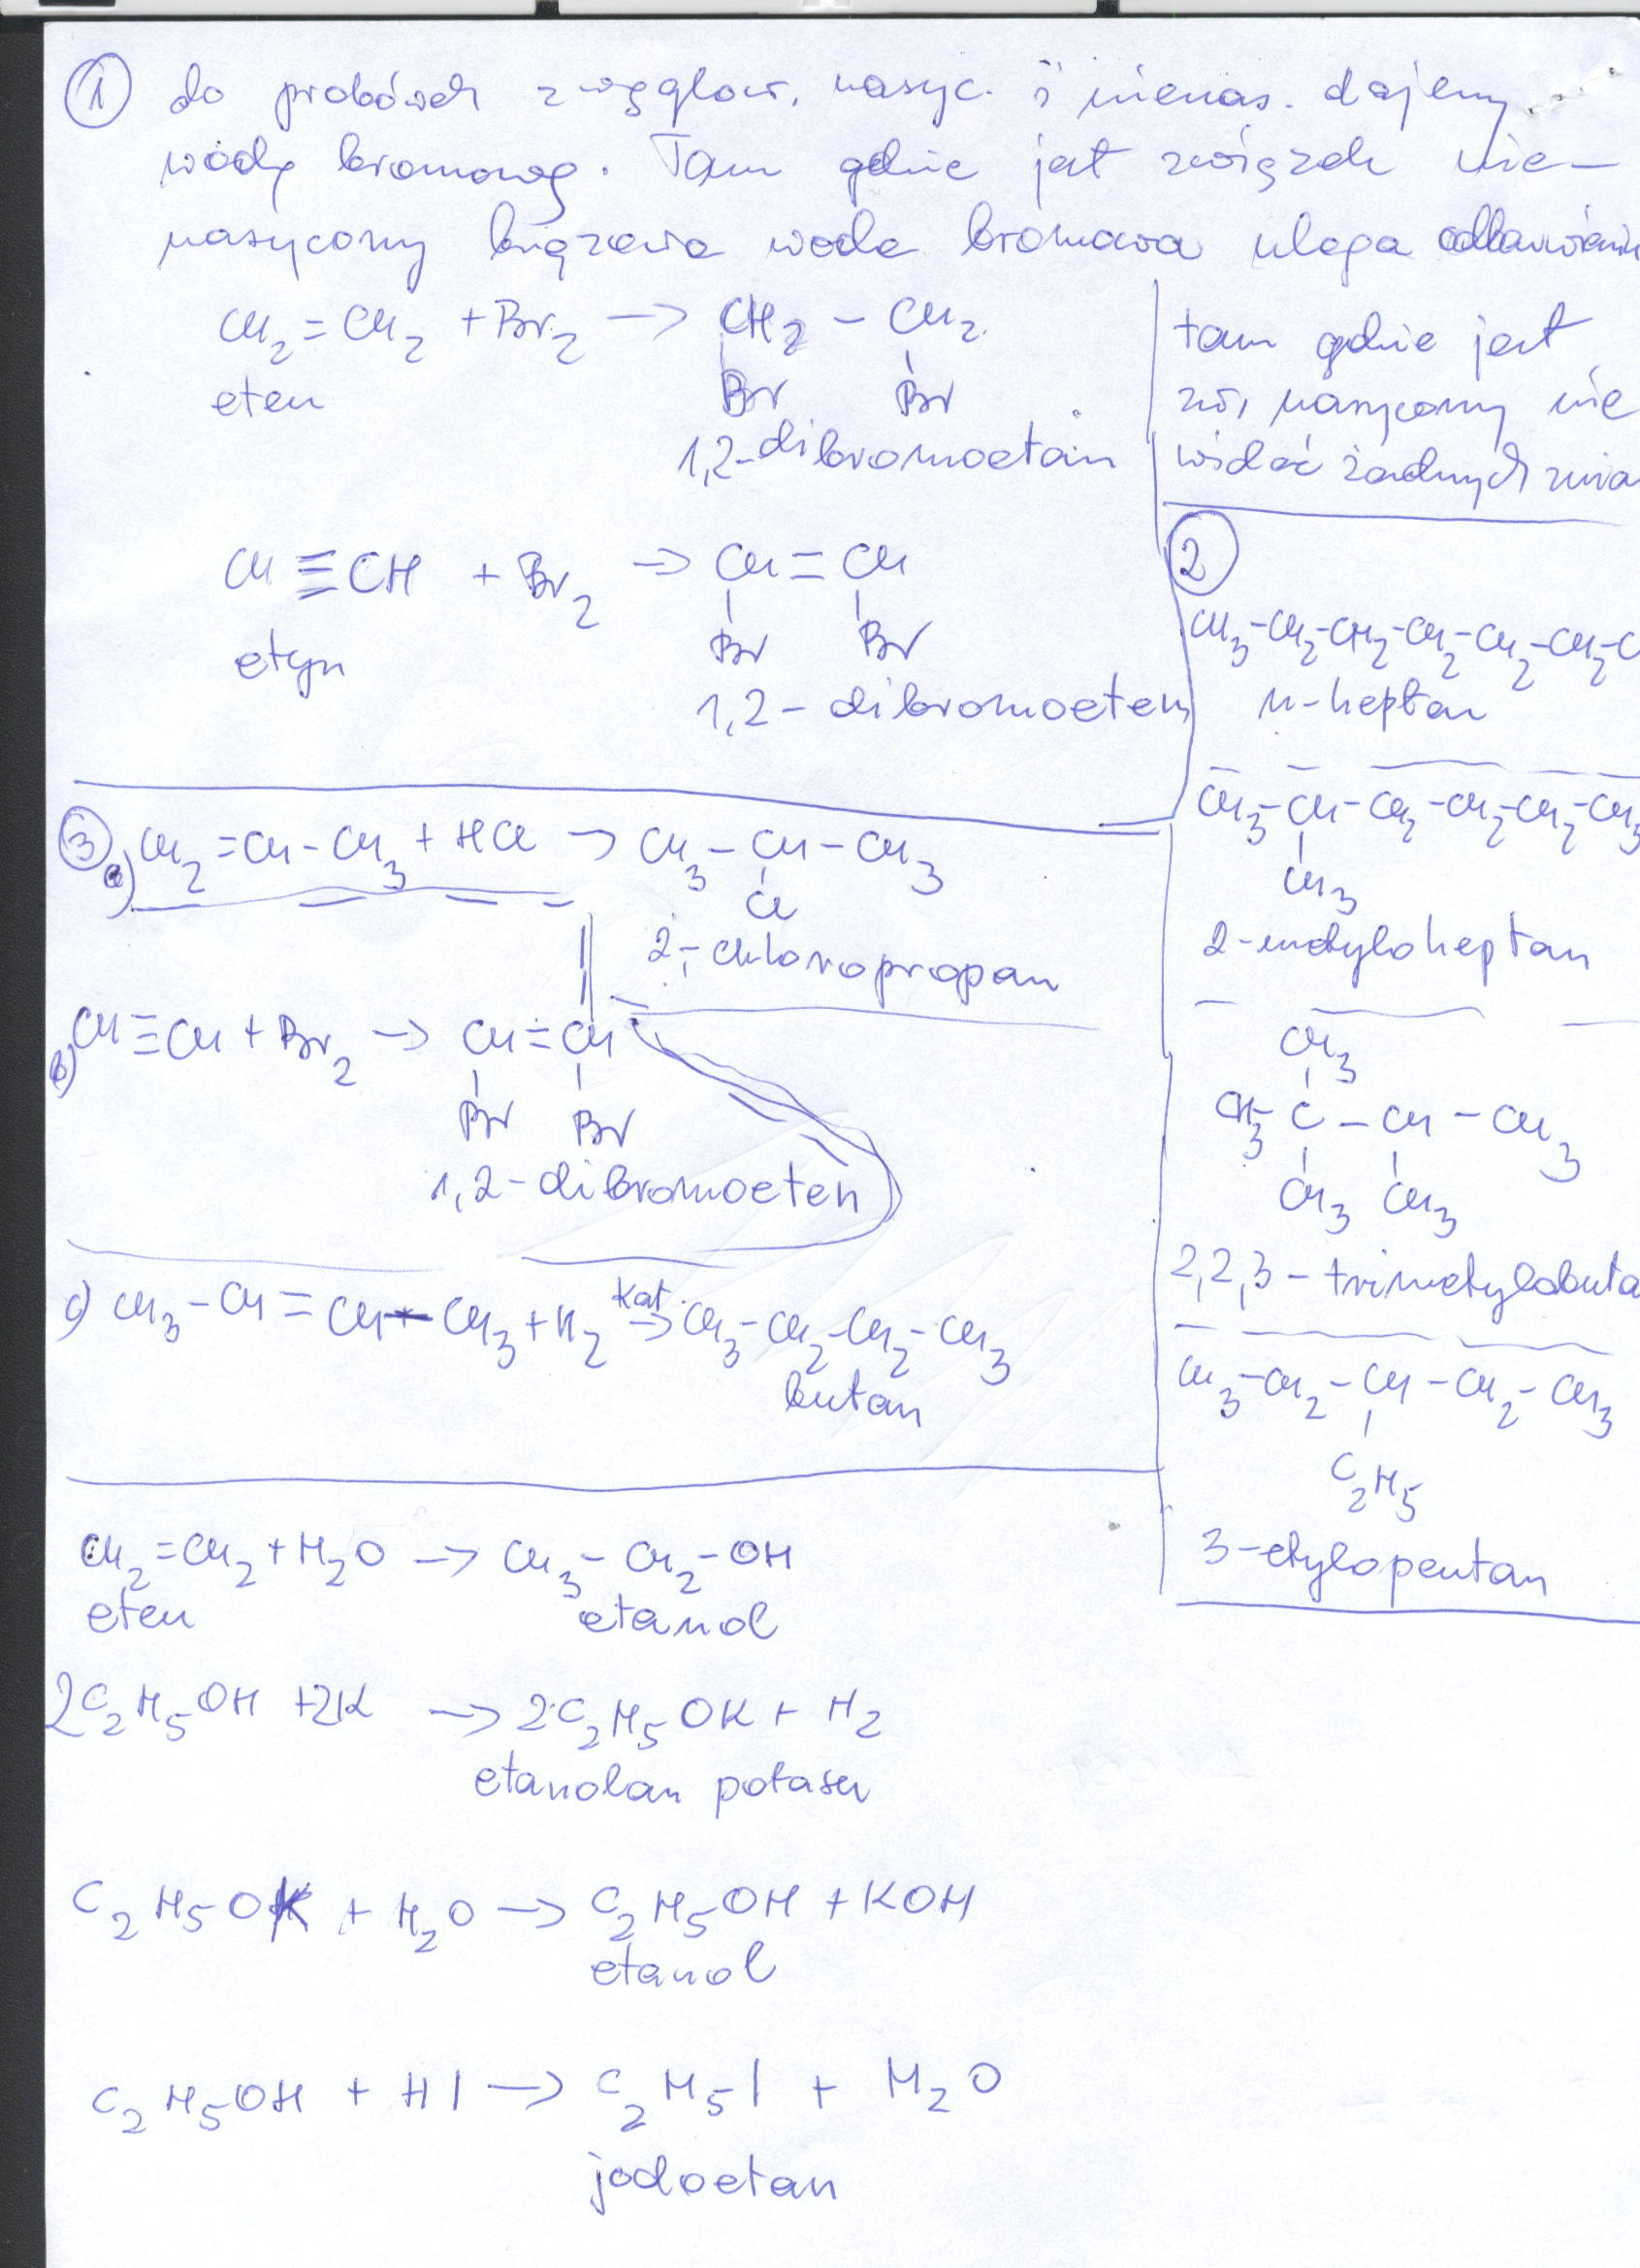 1 do probówek z węglow. nasyc. i nienas. dajemy
wodę bromową. Tam gdzie jest związek nie-
nasycony brązowa woda bromowa ulega odbarwieniu
CH2=CH2 + Br2 → CH2 - CH2
Br Br
eten
1,2-dibromoetan
tam gdzie jest
zw, nasycony nie
widać żadnych zmia
CH≡CH + Br2 → CH=CH
Br Br
etyn
1,2-dibromoeten
2
CH3-CH2-CH2-CH2-CH2-CH2-C
n-heptan
CH3-CH-CH2-CH2-CH2-CH3
CH3
2-metyloheptan
CH3
CH3-C-CH-CH3
CH3 CH3
2,2,3-trimetylobuta
CH3-CH2-CH-CH2-CH3
C2H5
3-etylopentan
3
a) CH2=CH-CH3 + HCl → CH3-CH-CH3
Cl
2-chloropropan
b) CH≡CH + Br2 → CH=CH
Br Br
1,2-dibromoeten
c) CH3-CH=CH-CH3 + H2 kat. → CH3-CH2-CH2-CH3
butan
CH2=CH2 + H2O → CH3-CH2-OH
eten etanol
2C2H5OH + 2K → 2C2H5OK + H2
etanolan potasu
C2H5OK + H2O → C2H5OH + KOH
etanol
C2H5OH + HI → C2H5I + H2O
jodoetan